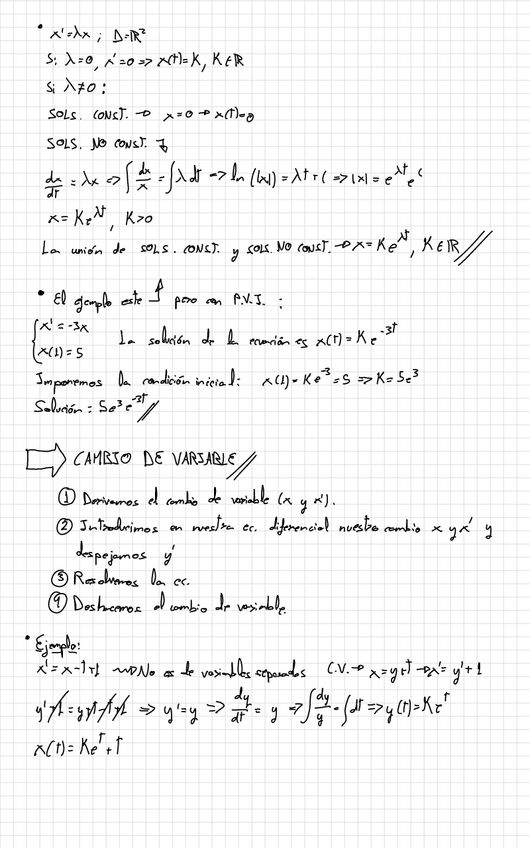 • x' = λx ; D = ℝ²
Si λ=0, x'=0 => x(t)=K, K∈ℝ
Si λ≠0 :
SOLS. CONST. → x=0 → x(t)=0
SOLS. NO CONST. ↴
dx/dt = λx => ∫ dx/x = ∫ λ dt => ln(|x|) = λt + C => |x| = e^{λt} e^C
x = K e^{λt}, K>0
La unión de SOLS. CONST. y SOLS. NO CONST. → x = K e^{λt}, K∈ℝ //
• El ejemplo este ↑ pero con P.V.I. :
{ x' = -3x
x(1) = 5 La solución de la ecuación es x(t) = K e^{-3t}
Imponemos la condición inicial: x(1) = K e^{-3} = 5 => K = 5e³
Solución : 5e³ e^{-3t} //
⇒ CAMBIO DE VARIABLE //
① Derivamos el cambio de variable (x y x').
② Introducimos en nuestra ec. diferencial nuestro cambio x y x' y
despejamos y'
③ Resolvemos la ec.
④ Deshacemos el cambio de variable.
• Ejemplo:
x' = x - t + 1 ⇝ No es de variables separadas C.V. → x = y + t → x' = y' + 1
y' + 1 = y + t - t + 1 => y' = y => dy/dt = y => ∫ dy/y = ∫ dt => y(t) = K e^t
x(t) = K e^t + t